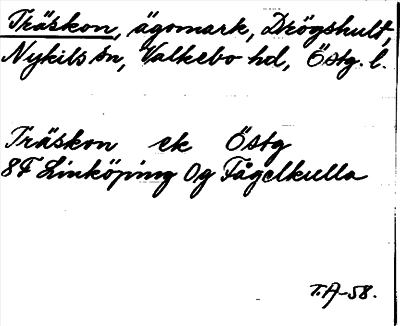 Träskon, ägomark, Drögshult,
Nykils sn, Valkebo hd, Östg. l.
Träskon ek Östg
8F Linköping 0g Fågelkulla
T.A-58.